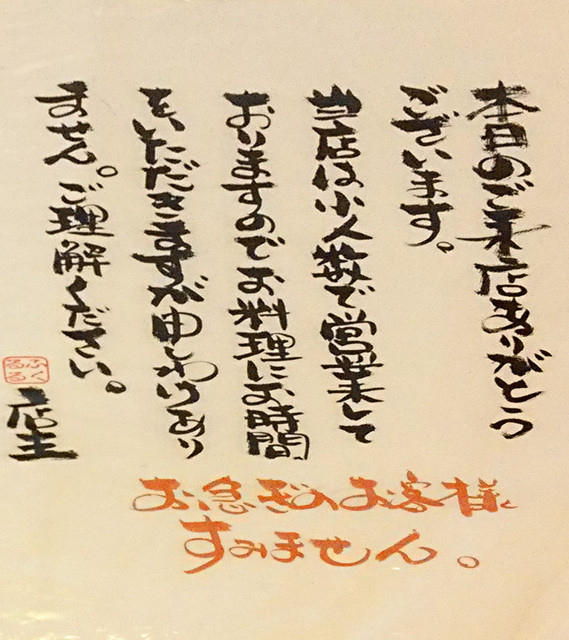 本日のご来店ありがとう
ございます。
当店は少人数で営業して
おりますのでお料理にお時間
をいただきますが申しわけあり
ません。ご理解ください。
店主
ふく
るる
お急ぎのお客様
すみません。